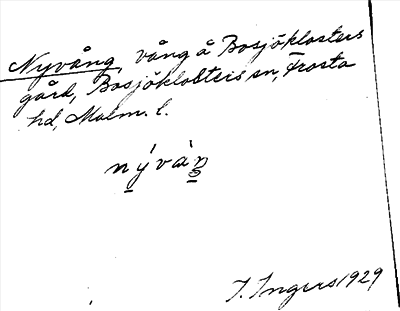 Nyvång, vång å Bosjöklosters
gård, Bosjöklosters sn, Frosta
hd, Malm. l.
nývá̀ŋ
I. Ingers 1929